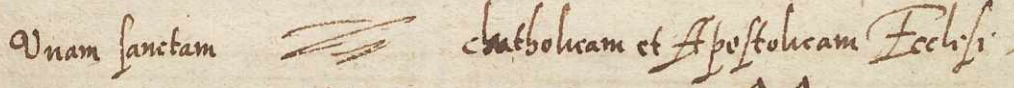 Unam sanctam chatholicam et Apostolicam Ecclesi